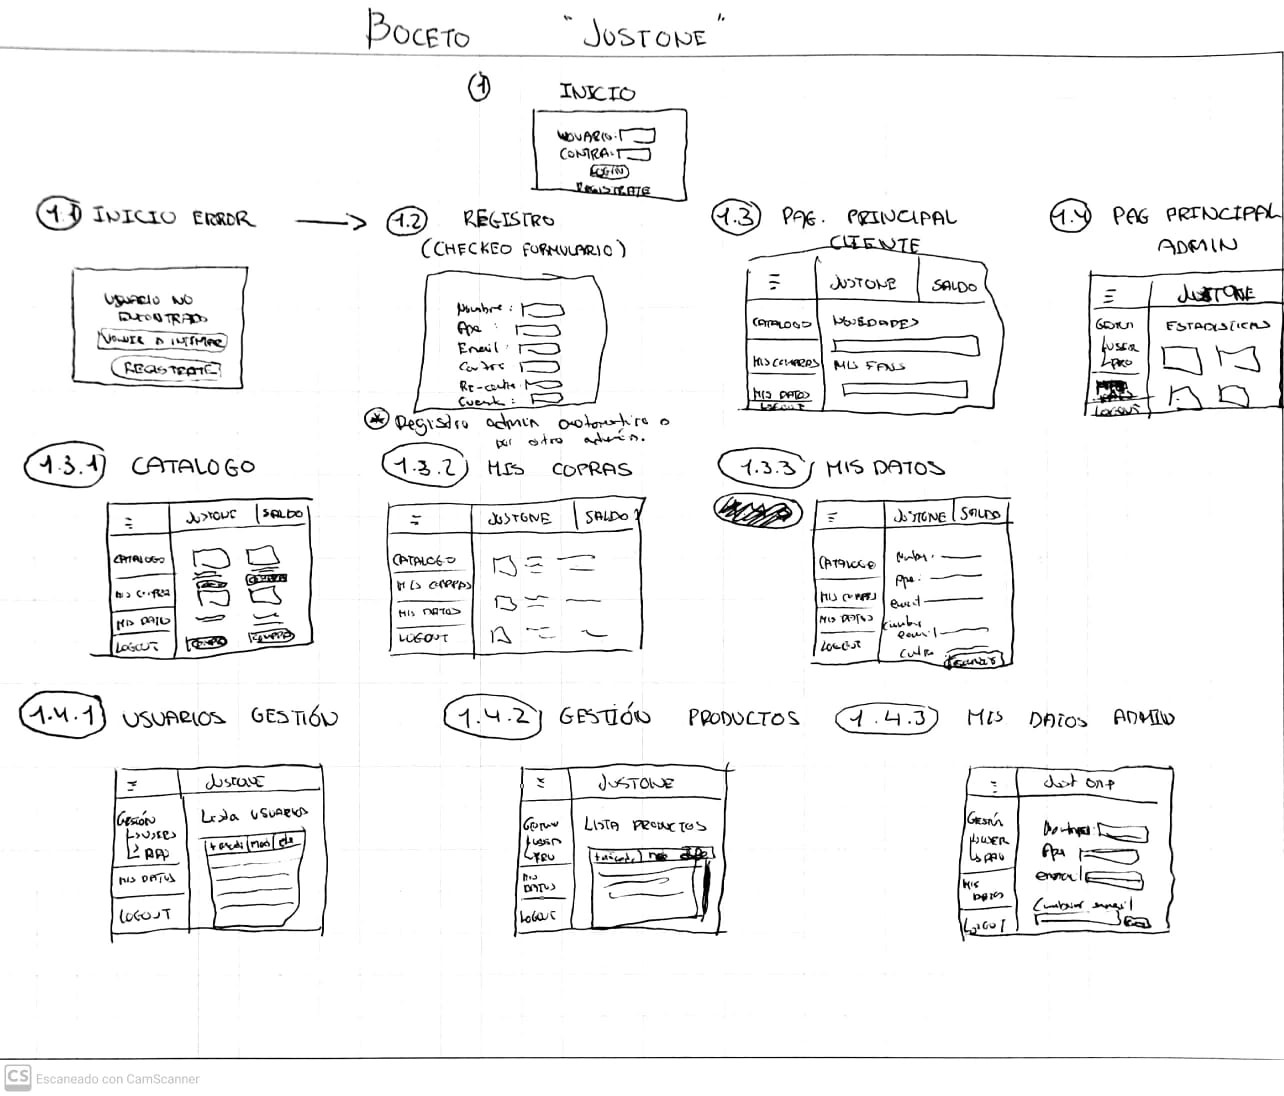 BOCETO "JUSTONE"
1 INICIO
USUARIO:
CONTRA:
LOGIN
REGISTRATE
1.1 INICIO ERROR
USUARIO NO
ENCONTRADO
VOLVER A INTENTAR
REGISTRATE
1.2 REGISTRO
(CHECKEO FORMULARIO)
Nombre:
Ape :
Email:
Contra:
Re-contra:
Cuenta:
* Registro admin automatico o
por otro admin.
1.3 PAG. PRINCIPAL
CLIENTE
JUSTONE SALDO
CATALOGO NOVEDADES
MIS COMPRAS MIS FANS
MIS DATOS
LOGOUT
1.4 PAG PRINCIPAL
ADMIN
JUSTONE
ESTADISTICAS
USER
PRO
LOGOUT
1.3.1 CATALOGO
JUSTONE SALDO
CATALOGO
MIS COMPRA
MIS DATO
LOGOUT
COMPRA
1.3.2 MIS COPRAS
JUSTONE SALDO
CATALOGO
MIS COMPRAS
MIS DATOS
LOGOUT
1.3.3 MIS DATOS
JUSTONE SALDO
CATALOGO
MIS COMPRAS
MIS DATOS
LOGOUT
Ape:
email
email
1.4.1 USUARIOS GESTIÓN
JUSTONE
GESIÓN
USERS
MIS DATOS
LOGOUT
Lista USUARIOS
1.4.2 GESTIÓN PRODUCTOS
JUSTONE
USER
PRU
MIS
DATOS
LOGOUT
LISTA PRODUCTOS
1.4.3 MIS DATOS ADMIN
Just one
USER
MIS
DATOS
Ape
email
Cambiar email
CS Escaneado con CamScanner